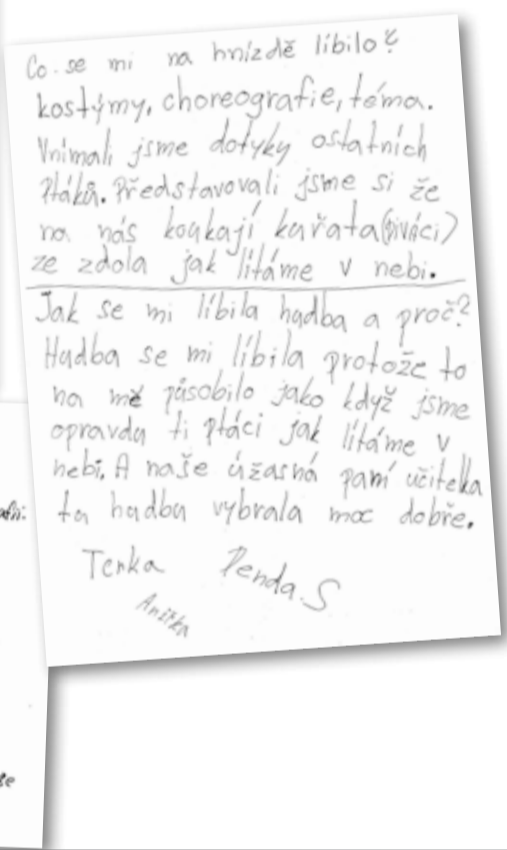 Co se mi na hnízdě líbilo?
kostýmy, choreografie, téma.
Vnímali jsme dotyky ostatních
ptáků. Představovali jsme si že
na nás koukají kuřata (diváci)
ze zdola jak lítáme v nebi.
Jak se mi líbila hudba a proč?
Hudba se mi líbila protože to
na mě působilo jako když jsme
opravdu ti ptáci jak lítáme v
nebi. A naše úžasná paní učitelka
tu hudbu vybrala moc dobře.
Terka Penda.S
Anička